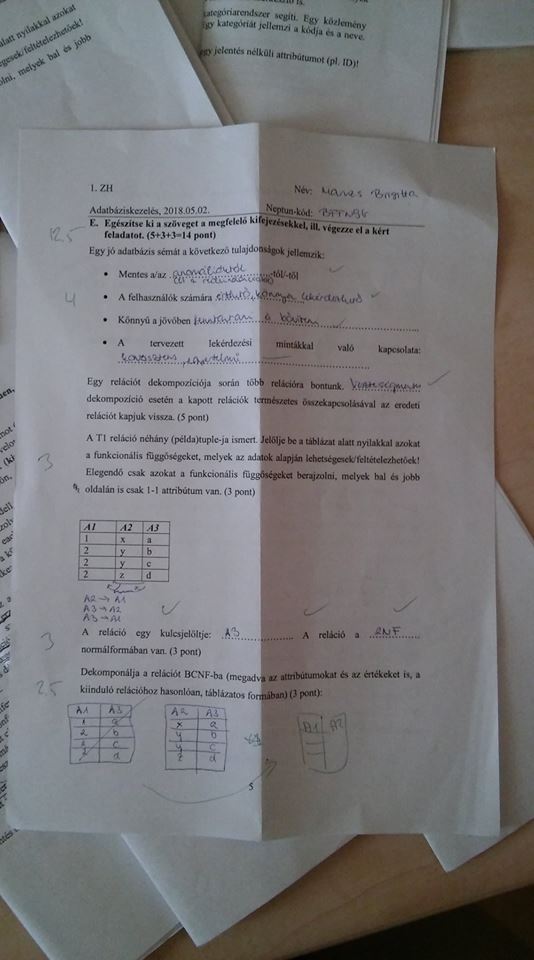 alatt nyilakkal azokat
kategóriarendszer segíti. Egy közlemény
egy kategóriát jellemzi a kódja és a neve.
jelentés nélküli attribútumot (pl. ID)!
1. ZH
Név:
Adatbáziskezelés, 2018.05.02.
Neptun-kód:
12,5
E. Egészítse ki a szöveget a megfelelő kifejezésekkel, ill. végezze el a kért
feladatot. (5+3+3+3=14 pont)
Egy jó adatbázis sémát a következő tulajdonságok jellemzik:
• Mentes a/az anomáliáktól -tól/-től
4
• A felhasználók számára érthető, könnyen
• Könnyű a jövőben
• A tervezett lekérdezési mintákkal való kapcsolata:
Egy relációt dekompozíciója során több relációra bontunk. Veszteségmentes
dekompozíció esetén a kapott relációk természetes összekapcsolásával az eredeti
relációt kapjuk vissza. (5 pont)
A T1 reláció néhány (példa)tuple-ja ismert. Jelölje be a táblázat alatt nyilakkal azokat
a funkcionális függőségeket, melyek az adatok alapján lehetségesek/feltételezhetőek!
3
Elegendő csak azokat a funkcionális függőségeket berajzolni, melyek bal és jobb
oldalán is csak 1-1 attribútum van. (3 pont)
A1 A2 A3
1 x a
2 y b
2 y c
2 z d
A2 → A1
A3 → A2
A3 → A1
A reláció egy kulcsjelöltje: A3 A reláció a 2NF
3
normálformában van. (3 pont)
Dekomponálja a relációt BCNF-ba (megadva az attribútumokat és az értékeket is, a
2,5
kiinduló relációhoz hasonlóan, táblázatos formában) (3 pont):
A1 A3 A2 A3 A1 A2
1 a x a
2 b y b
2 c y c
2 d z d
5